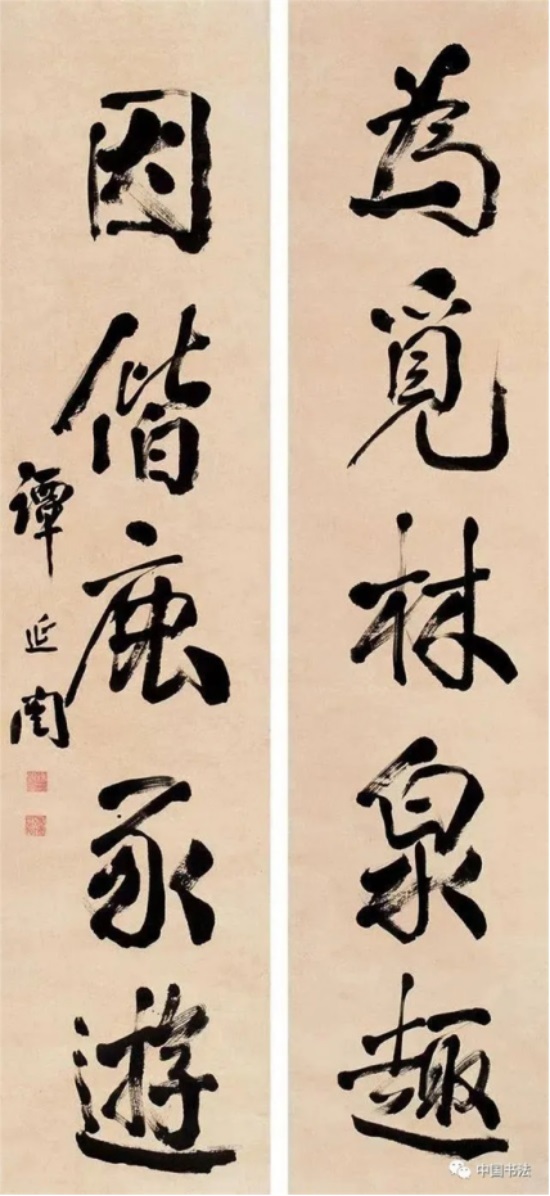 為覓林泉趣
因偕鹿豕遊
譚延闓
中国书法